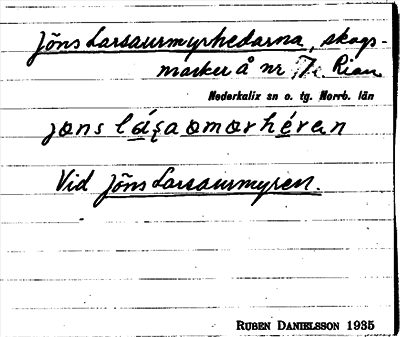 Jöns Larsaurmyrhedarna, skogs-
marker å nr 7 Rian
Nederkalix sn o. tg. Norrb. län
Vid Jöns Larsaurmyren.
RUBEN DANIELSSON 1935